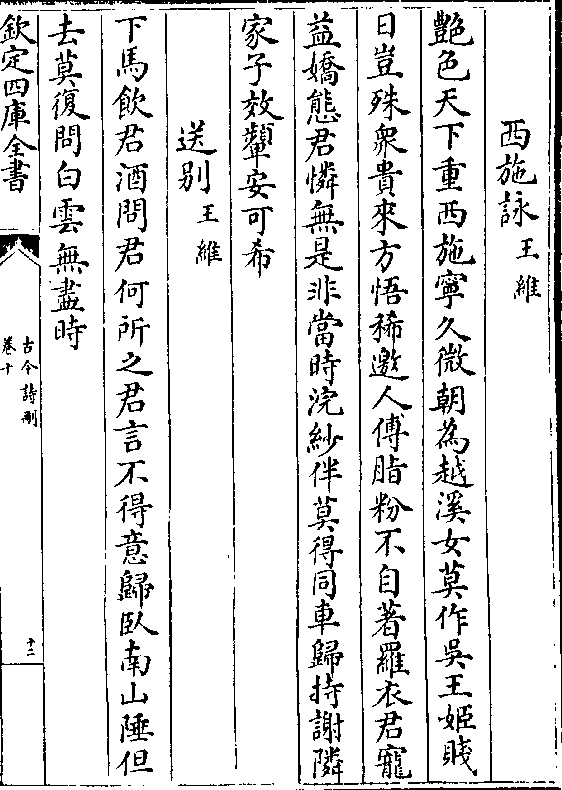 西施詠王維
艷色天下重西施寧久微朝為越溪女莫作吳王姬賤
日豈殊衆貴來方悟稀邀人傅脂粉不自著羅衣君寵
益嬌態君憐無是非當時浣紗伴莫得同車歸持謝隣
家子效顰安可希
送别王維
下馬飲君酒問君何所之君言不得意歸臥南山陲但
去莫復問白雲無盡時
欽定四庫全書
古今詩刪
卷十
十二